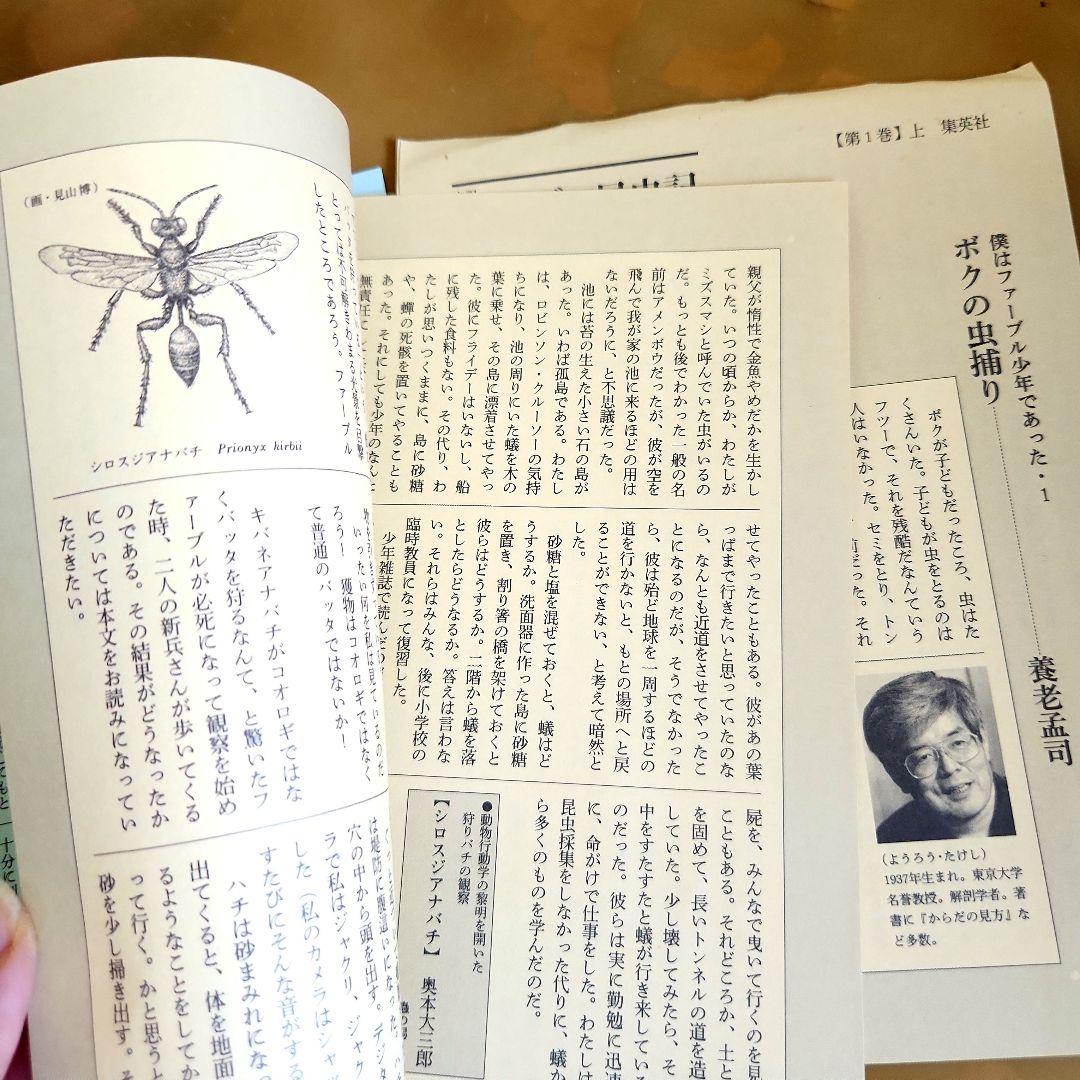 【第1巻】上　集英社
僕はファーブル少年であった・1
ボクの虫捕り
養老孟司
ボクが子どもだったころ、虫はた
くさんいた。子どもが虫をとるのは
フツーで、それを残酷だなんていう
人はいなかった。セミをとり、トン
だった。それ
(ようろう・たけし)
1937年生まれ。東京大学
名誉教授。解剖学者。著
書に『からだの見方』な
ど多数。
親父が惰性で金魚やめだかを生かし
ていた。いつの頃からか、わたしが
ミズスマシと呼んでいた虫がいるの
だ。もっとも後でわかった一般の名
前はアメンボウだったが、彼が空を
飛んで我が家の池に来るほどの用は
ないだろうに、と不思議だった。
池には苔の生えた小さい石の島が
あった。いわば孤島である。わたし
は、ロビンソン・クルーソーの気持
ちになり、池の周りにいた蟻を木の
葉に乗せ、その島に漂着させてやっ
た。彼にフライデーはいないし、船
に残した食料もない。その代り、わ
たしが思いつくままに、島に砂糖
や、蟬の死骸を置いてやることも
あった。それにしても少年のなんと
無責任に
せてやったこともある。彼があの葉
っぱまで行きたいと思っていたのな
ら、なんとも近道をさせてやったこ
とになるのだが、そうでなかった
ら、彼は殆ど地球を一周するほどの
道を行かないと、もとの場所へと戻
ることができない、と考えて暗然と
した。
砂糖と塩を混ぜておくと、蟻はど
うするか。洗面器に作った島に砂糖
を置き、割り箸の橋を架けておくと
彼らはどうするか。二階から蟻を落
としたらどうなるか。答えは言わな
い。それらはみんな、後に小学校の
臨時教員になって復習した。
少年雑誌で読んだの
屍を、みんなで曳いて行くのを見
こともある。それどころか、土と
を固めて、長いトンネルの道を造
していた。少し壊してみたら、そ
中をすたすたと蟻が行き来している
のだった。彼らは実に勤勉に迅速
に、命がけで仕事をした。わたしは
昆虫採集をしなかった代りに、蟻か
ら多くのものを学んだのだ。
●動物行動学の黎明を開いた
狩りバチの観察
【シロスジアナバチ】　奥本大三郎
（画・見山博）
とっては不可解きわまる光景を目撃
したところであろう。ファーブル
シロスジアナバチ　Prionyx kirbii
いったい何を私は見ているのだ
ろう！　獲物はコオロギではなく
て普通のバッタではないか！
キバネアナバチがコオロギではな
くバッタを狩るなんて、と驚いたフ
ァーブルが必死になって観察を始め
た時、二人の新兵さんが歩いてくる
のである。その結果がどうなったか
については本文をお読みになってい
ただきたい。
は堤防に腹這いになった
穴の中から頭を出す。デジタ
ラで私はジャクリ、ジャク
した（私のカメラはシャッ
すたびにそんな音がする
ハチは砂まみれになっ
出てくると、体を地面
るようなことをしてか
って行く。かと思うと
砂を少し掃き出す。そ